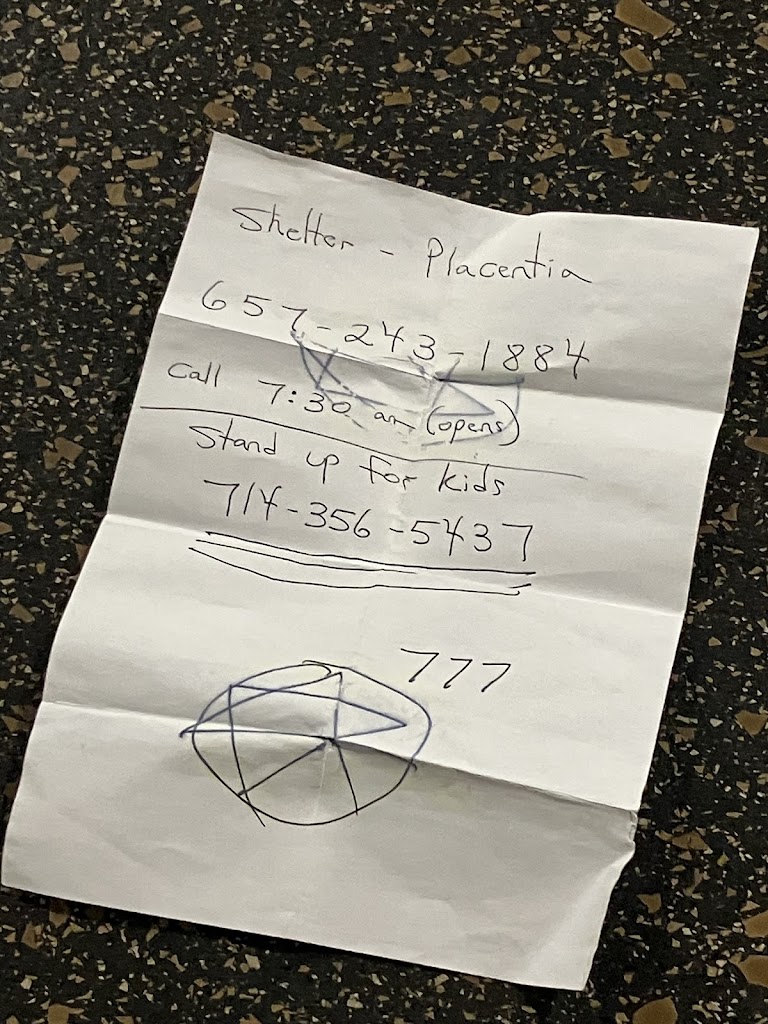 Shelter - Placentia
657-243-1884
Call 7:30 am (opens)
Stand up for kids
714-356-5437
777